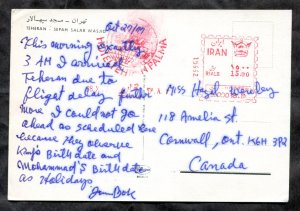 تهران - مسجد سپهسالار
TEHERAN - SEPAH SALAR MASJED
Oct 27/77
This morning exactly
3 AM I arrived
Teheran due to
flight delay further
more I could not go
ahead as scheduled here
because they observe
King's Birthdate and
Mohammad's Birthdate
as Holidays
IRAN
RIALS
15.00
Miss Hazel
118 Amelia St.
Cornwall, Ont. K6H 3P2
Canada